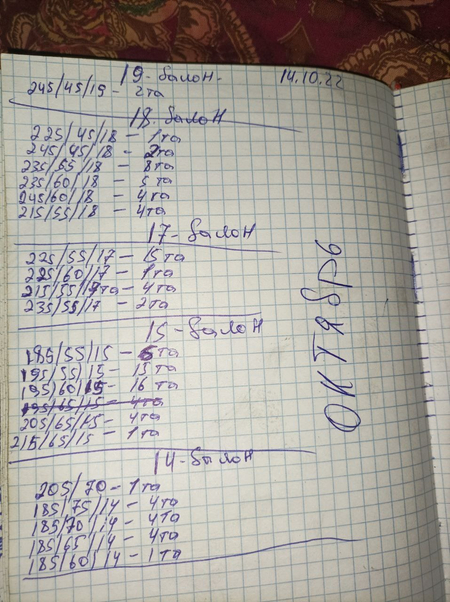 19-балон. 14.10.22
245/45/19 - 2та
18. балон
225/45/18 - 1та
245/45/18 - 2та
235/55/18 - 8та
235/60/18 - 5та
245/60/18 - 4та
215/55/18 - 4та
17-балон
225/55/17 - 15та
225/60/17 - 1та
215/55/17та - 4та
235/55/17 - 2та
15-балон
185/55/15 - 6та
195/55/15 - 15та
195/60/15 - 16та
195/65/15 - 4та
205/65/15 - 4та
215/65/15 - 1та
14-балон
205/70 - 1та
185/75/14 - 4та
185/70/14 - 4та
185/65/14 - 4та
185/60/14 - 1та
октябрь